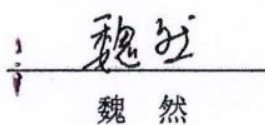 魏然
魏 然